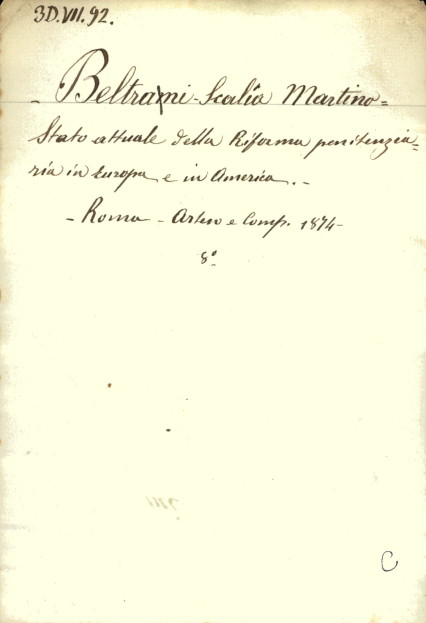 3D.VII.92.
- Beltrani-Scalia Martino=
Stato attuale della Riforma penitenzia=
ria in Europa e in America. -
- Roma - Artero e Comp. 1874-
8°
C